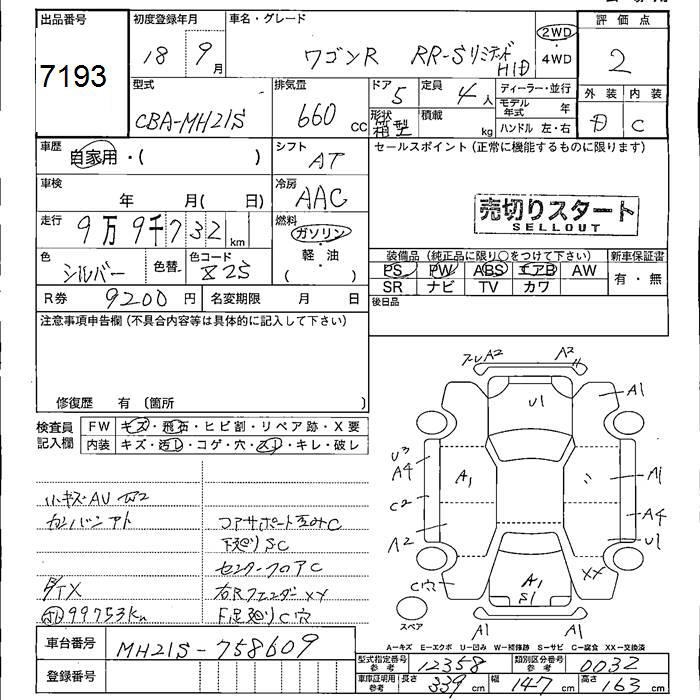 出品番号 初度登録年月 車名・グレード 評価点
7193 18 9月 ワゴンR RR-Sリミテッド HID 2WD・4WD 2
型式 排気量 ドア 定員 ディーラー・並行 外装 内装
CBA-MH21S 660cc 5 4人 モデル年式 年 D C
形状 箱型 積載 kg ハンドル 左・右
車歴 シフト セールスポイント(正常に機能するものに限ります)
自家用・( ) AT
車検 冷房
年 月( 日) AAC 売切りスタート
SELLOUT
走行 燃料
9万9千732km ガソリン
色 色替 色コード 軽・油 装備品(純正品に限り○をつけて下さい) 新車保証書
シルバー Z2S ( ) PS PW ABS エアB AW 有・無
SR ナビ TV カワ
R券 9200円 名変期限 月 日 後日品
注意事項申告欄(不具合内容等は具体的に記入して下さい)
修復歴 有 (箇所 )
検査員記入欄 FW キズ・飛石・ヒビ割・リペア跡・X要
内装 キズ・汚レ・コゲ・穴・スレ・キレ・破レ
アルA2 A2
U1 A1
U3
A4 A1 A1
C2 A4
A2 U1
C穴 XX
A1
S1
スペア A1 A1
小キズAU
カンバンアト コアサポート歪みC
下廻りSC
センターフロアC
TX 右RフェンダーXX
99753Km 下足廻りC穴
A-キズ E-エクボ U-凹み W-補修跡 S-サビ C-腐食 XX-交換済
車台番号 MH21S-758609
型式指定番号 参考 12358 類別区分番号 参考 0032
登録番号
車庫証明用 参考 長さ 339cm 幅 147cm 高さ 163cm